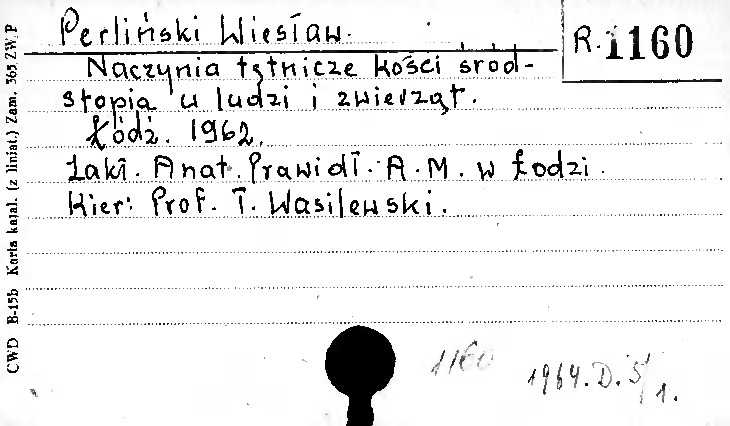 Perliński Wiesław.
R. 1160
Naczynia tętnicze kości śród-
stopia u ludzi i zwierząt.
Łódź. 1962.
Zakł. Anat. Prawidł. A. M. w Łodzi.
Kier: Prof. T. Wasilewski.
1160
1964. D. 5/1.
CWD B-15b Karta katal. (z liniat.) Zam. 365 ZW. P